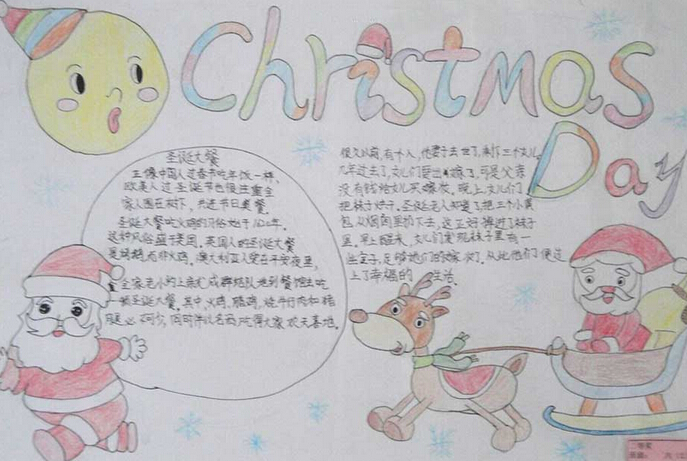 Christmas
Day
圣诞大餐
正像中国人过春节吃年饭一样,
欧美人过圣诞节也很注重全
家人围在树下,共进节日美餐。
圣诞大餐吃火鸡的习俗始于1620年。
这种风俗盛于美国。英国人的圣诞大餐
是烤鹅,而非火鸡。澳大利亚人爱在平安夜里,
全家老小约上亲友成群结队地到餐馆去吃
一顿圣诞大餐。其中,火鸡、腊鸡、烧牛仔肉和猪
腿必不可少,同时伴以名酒,吃得大家欢天喜地。
很久以前,有个人,他妻子去世了,剩下三个女儿。
几年过去了,女儿们要出嫁了,可是父亲
没有钱给女儿买嫁妆。晚上,女儿们
把袜子烘干。圣诞老人知道了,把三个小黄
包从烟囱里扔下去,这正好掉进了袜子
里。早上醒来,女儿们发现袜子里有一
些金子,足够她们的嫁妆了。从此他们便过
上了幸福的生活。
二等奖